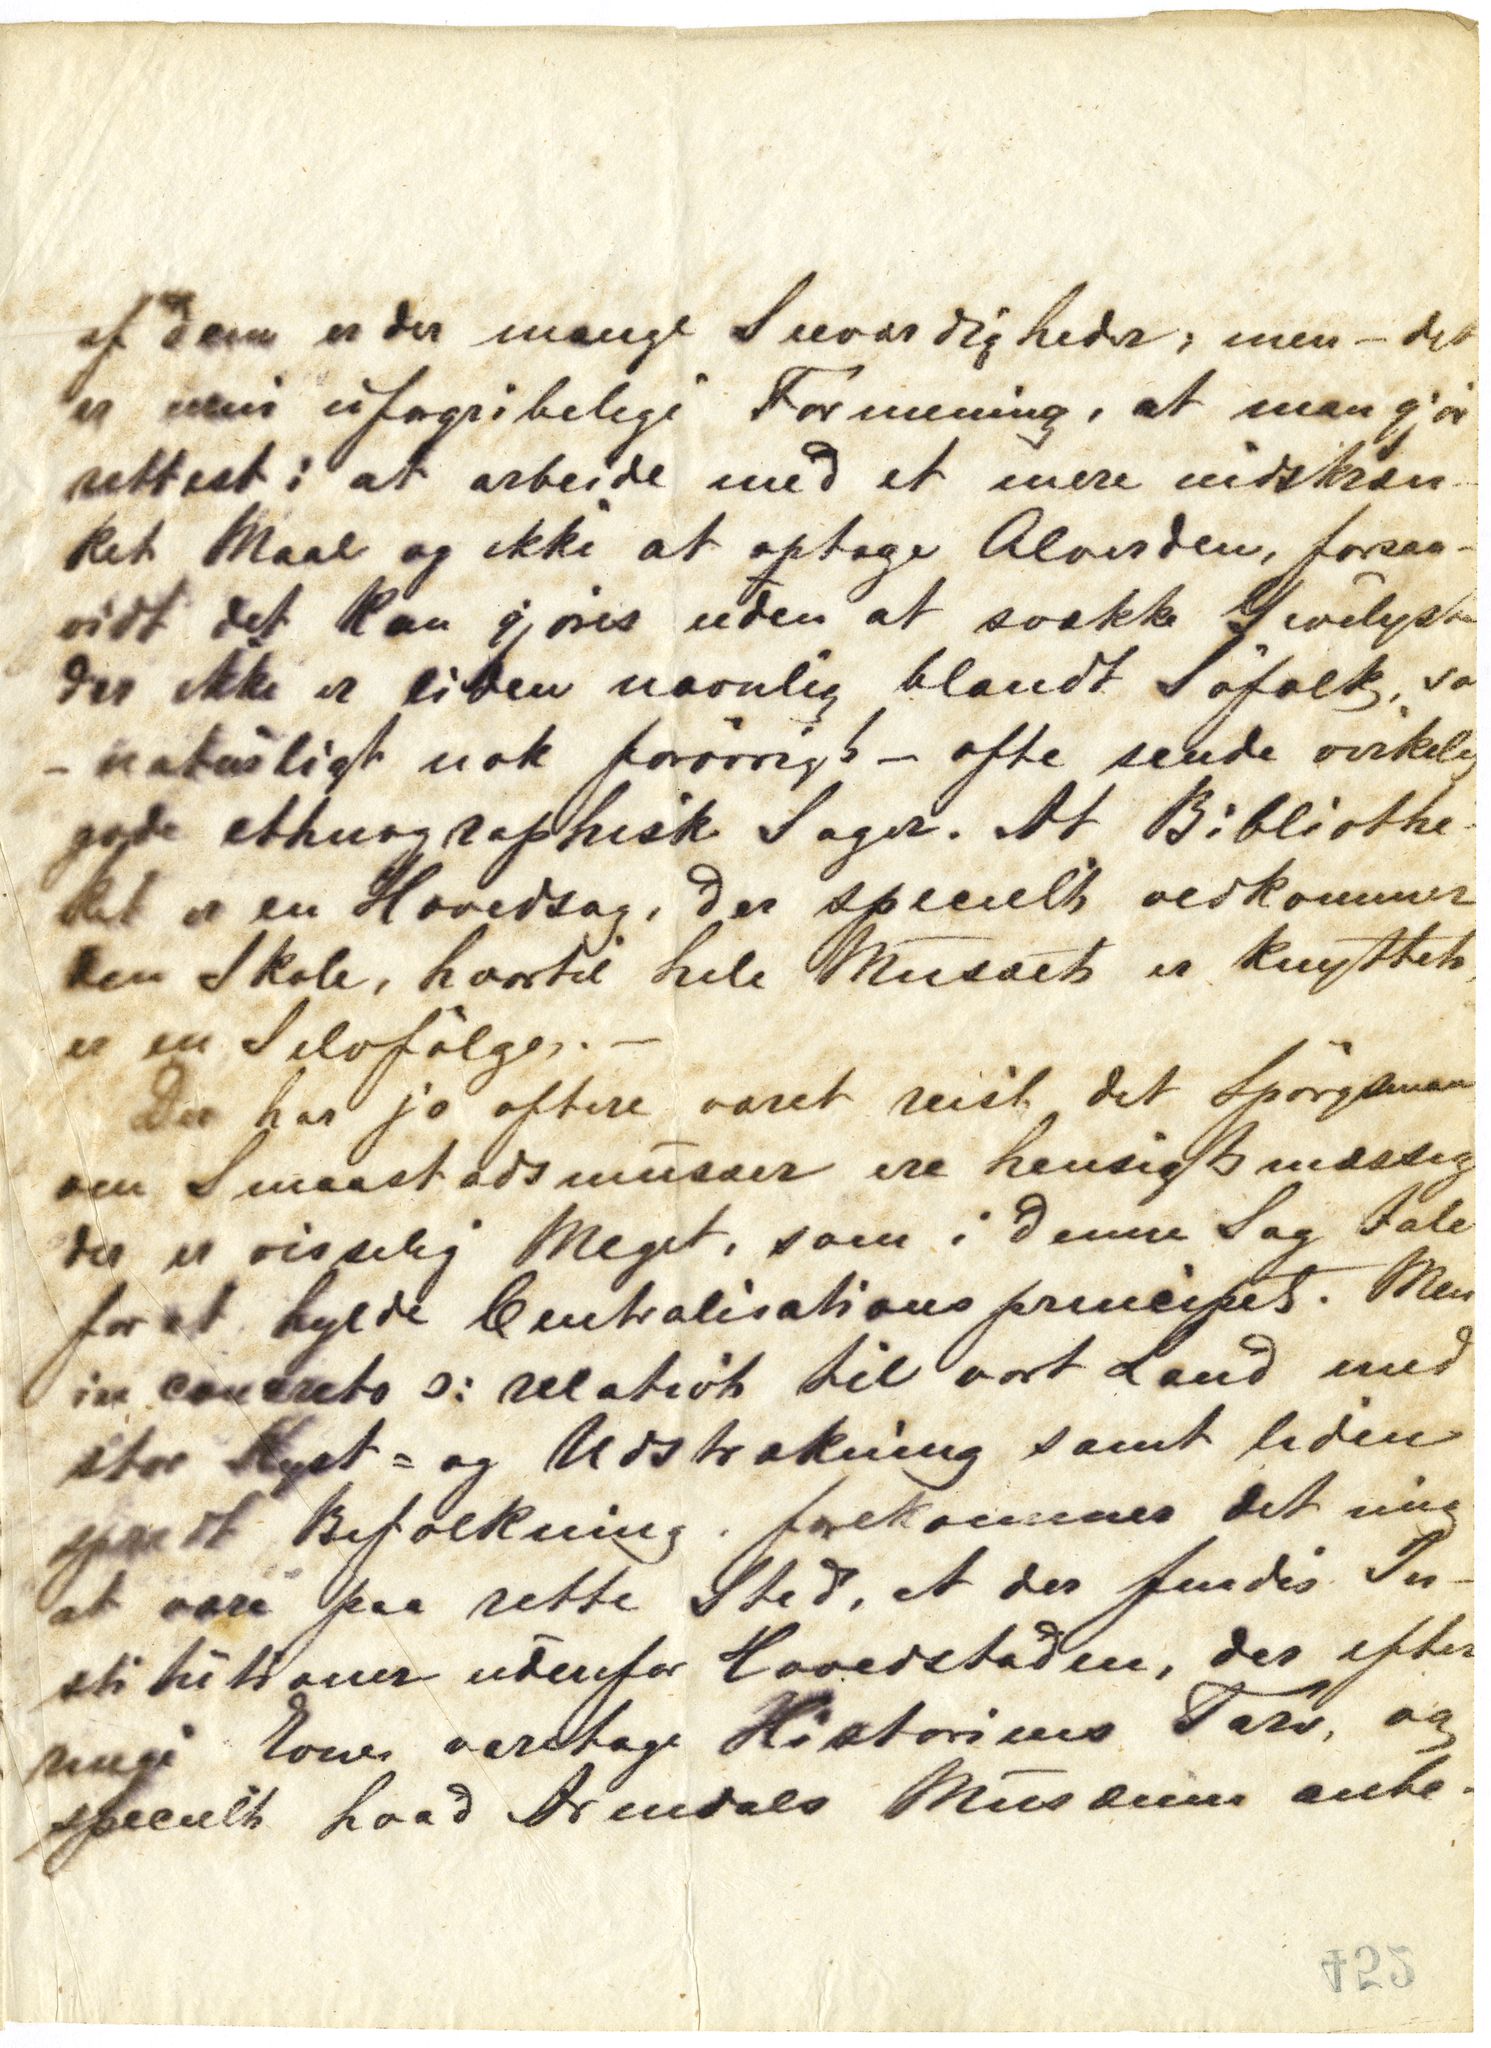 af dem er der mange Seeværdigheder; men – det
er min uforgribelige Formening, at man gjør
rettest i at arbeide med et mere indskræn-
ket Maal og ikke at optage Alverden, forsaa-
vidt det kan gjøres uden at svække Giverlyst
der ikke er liden navnlig blandt Söfolk, so
– naturligt nok forövrigt – ofte sende virkelig
gode ethnographisk Sager. At Bibliothe-
ket er en Hovedsag, der specielt vedkommer
den Skole, hvortil hele Musæet er knyttet,
er en Selvfölge. –
Der har jo oftere været reist det Spörgsmaa
om Smaastadsmusæer ere hensigtsmæssig
der er visselig Meget, som i denne Sag tale
for at hylde Centralisationsprincipet. Men
in concreto ɔ: relativt til vort Land med
stor Kyst= og Udstrækning samt liden
spredt Befolkning, forekommer det mig
at være paa rette Sted, at der findes In-
stitutioner udenfor Hovedstaden, der efter
ringe Evne varetage Historiens Tarv, og
specielt hvad Arendals Musæum anbe-
452